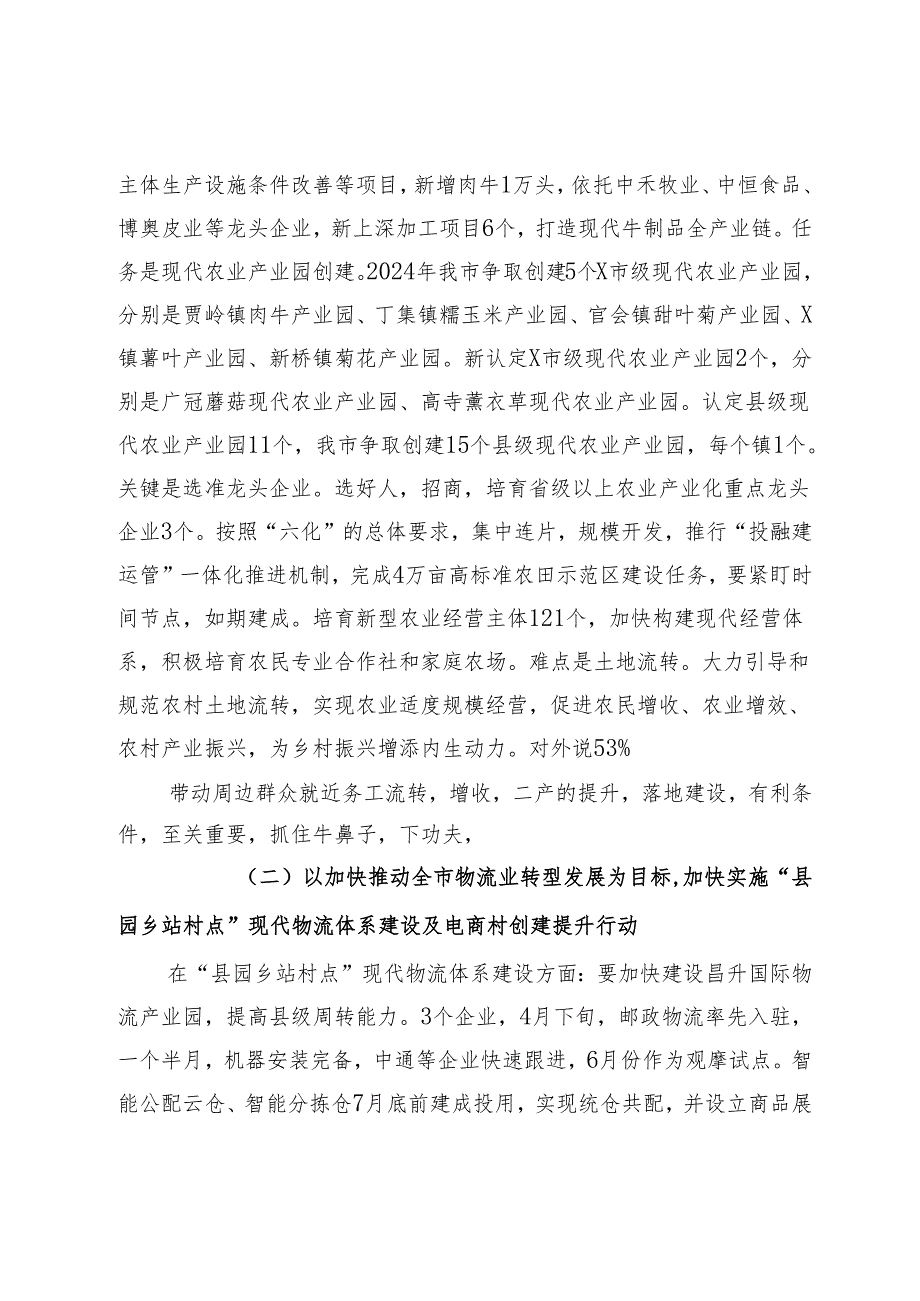 主体生产设施条件改善等项目，新增肉牛1万头，依托中禾牧业、中恒食品、
博奥皮业等龙头企业，新上深加工项目6个，打造现代牛制品全产业链。任
务是现代农业产业园创建。2024年我市争取创建5个X市级现代农业产业园，
分别是贾岭镇肉牛产业园、丁集镇糯玉米产业园、官会镇甜叶菊产业园、X
镇薯叶产业园、新桥镇菊花产业园。新认定X市级现代农业产业园2个，分
别是广冠蘑菇现代农业产业园、高寺薰衣草现代农业产业园。认定县级现
代农业产业园11个，我市争取创建15个县级现代农业产业园，每个镇1个。
关键是选准龙头企业。选好人，招商，培育省级以上农业产业化重点龙头
企业3个。按照“六化”的总体要求，集中连片，规模开发，推行“投融建
运管”一体化推进机制，完成4万亩高标准农田示范区建设任务，要紧盯时
间节点，如期建成。培育新型农业经营主体121个，加快构建现代经营体
系，积极培育农民专业合作社和家庭农场。难点是土地流转。大力引导和
规范农村土地流转，实现农业适度规模经营，促进农民增收、农业增效、
农村产业振兴，为乡村振兴增添内生动力。对外说53%
带动周边群众就近务工流转，增收，二产的提升，落地建设，有利条
件，至关重要，抓住牛鼻子，下功夫，
（二）以加快推动全市物流业转型发展为目标,加快实施“县
园乡站村点”现代物流体系建设及电商村创建提升行动
在“县园乡站村点”现代物流体系建设方面：要加快建设昌升国际物
流产业园，提高县级周转能力。3个企业，4月下旬，邮政物流率先入驻，
一个半月，机器安装完备，中通等企业快速跟进，6月份作为观摩试点。智
能公配云仓、智能分拣仓7月底前建成投用，实现统仓共配，并设立商品展